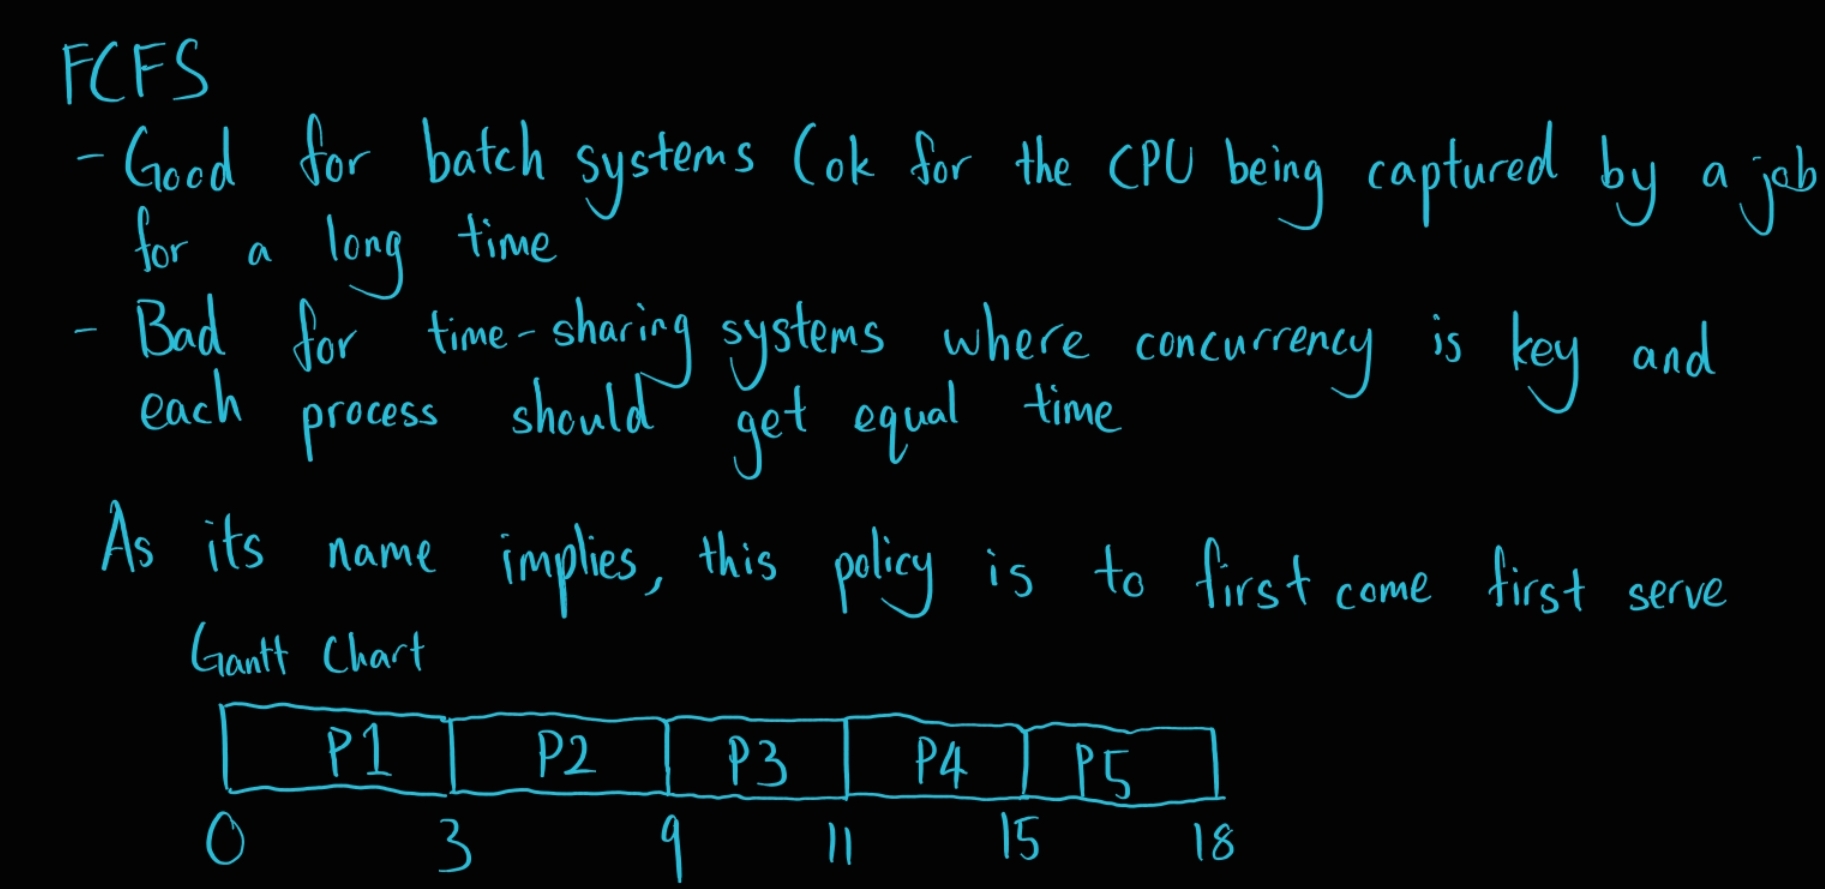 FCFS
- Good for batch systems (ok for the CPU being captured by a job
for a long time
- Bad for time-sharing systems where concurrency is key and
each process should get equal time
As its name implies, this policy is to first come first serve
Gantt Chart
P1 P2 P3 P4 P5
0 3 9 11 15 18